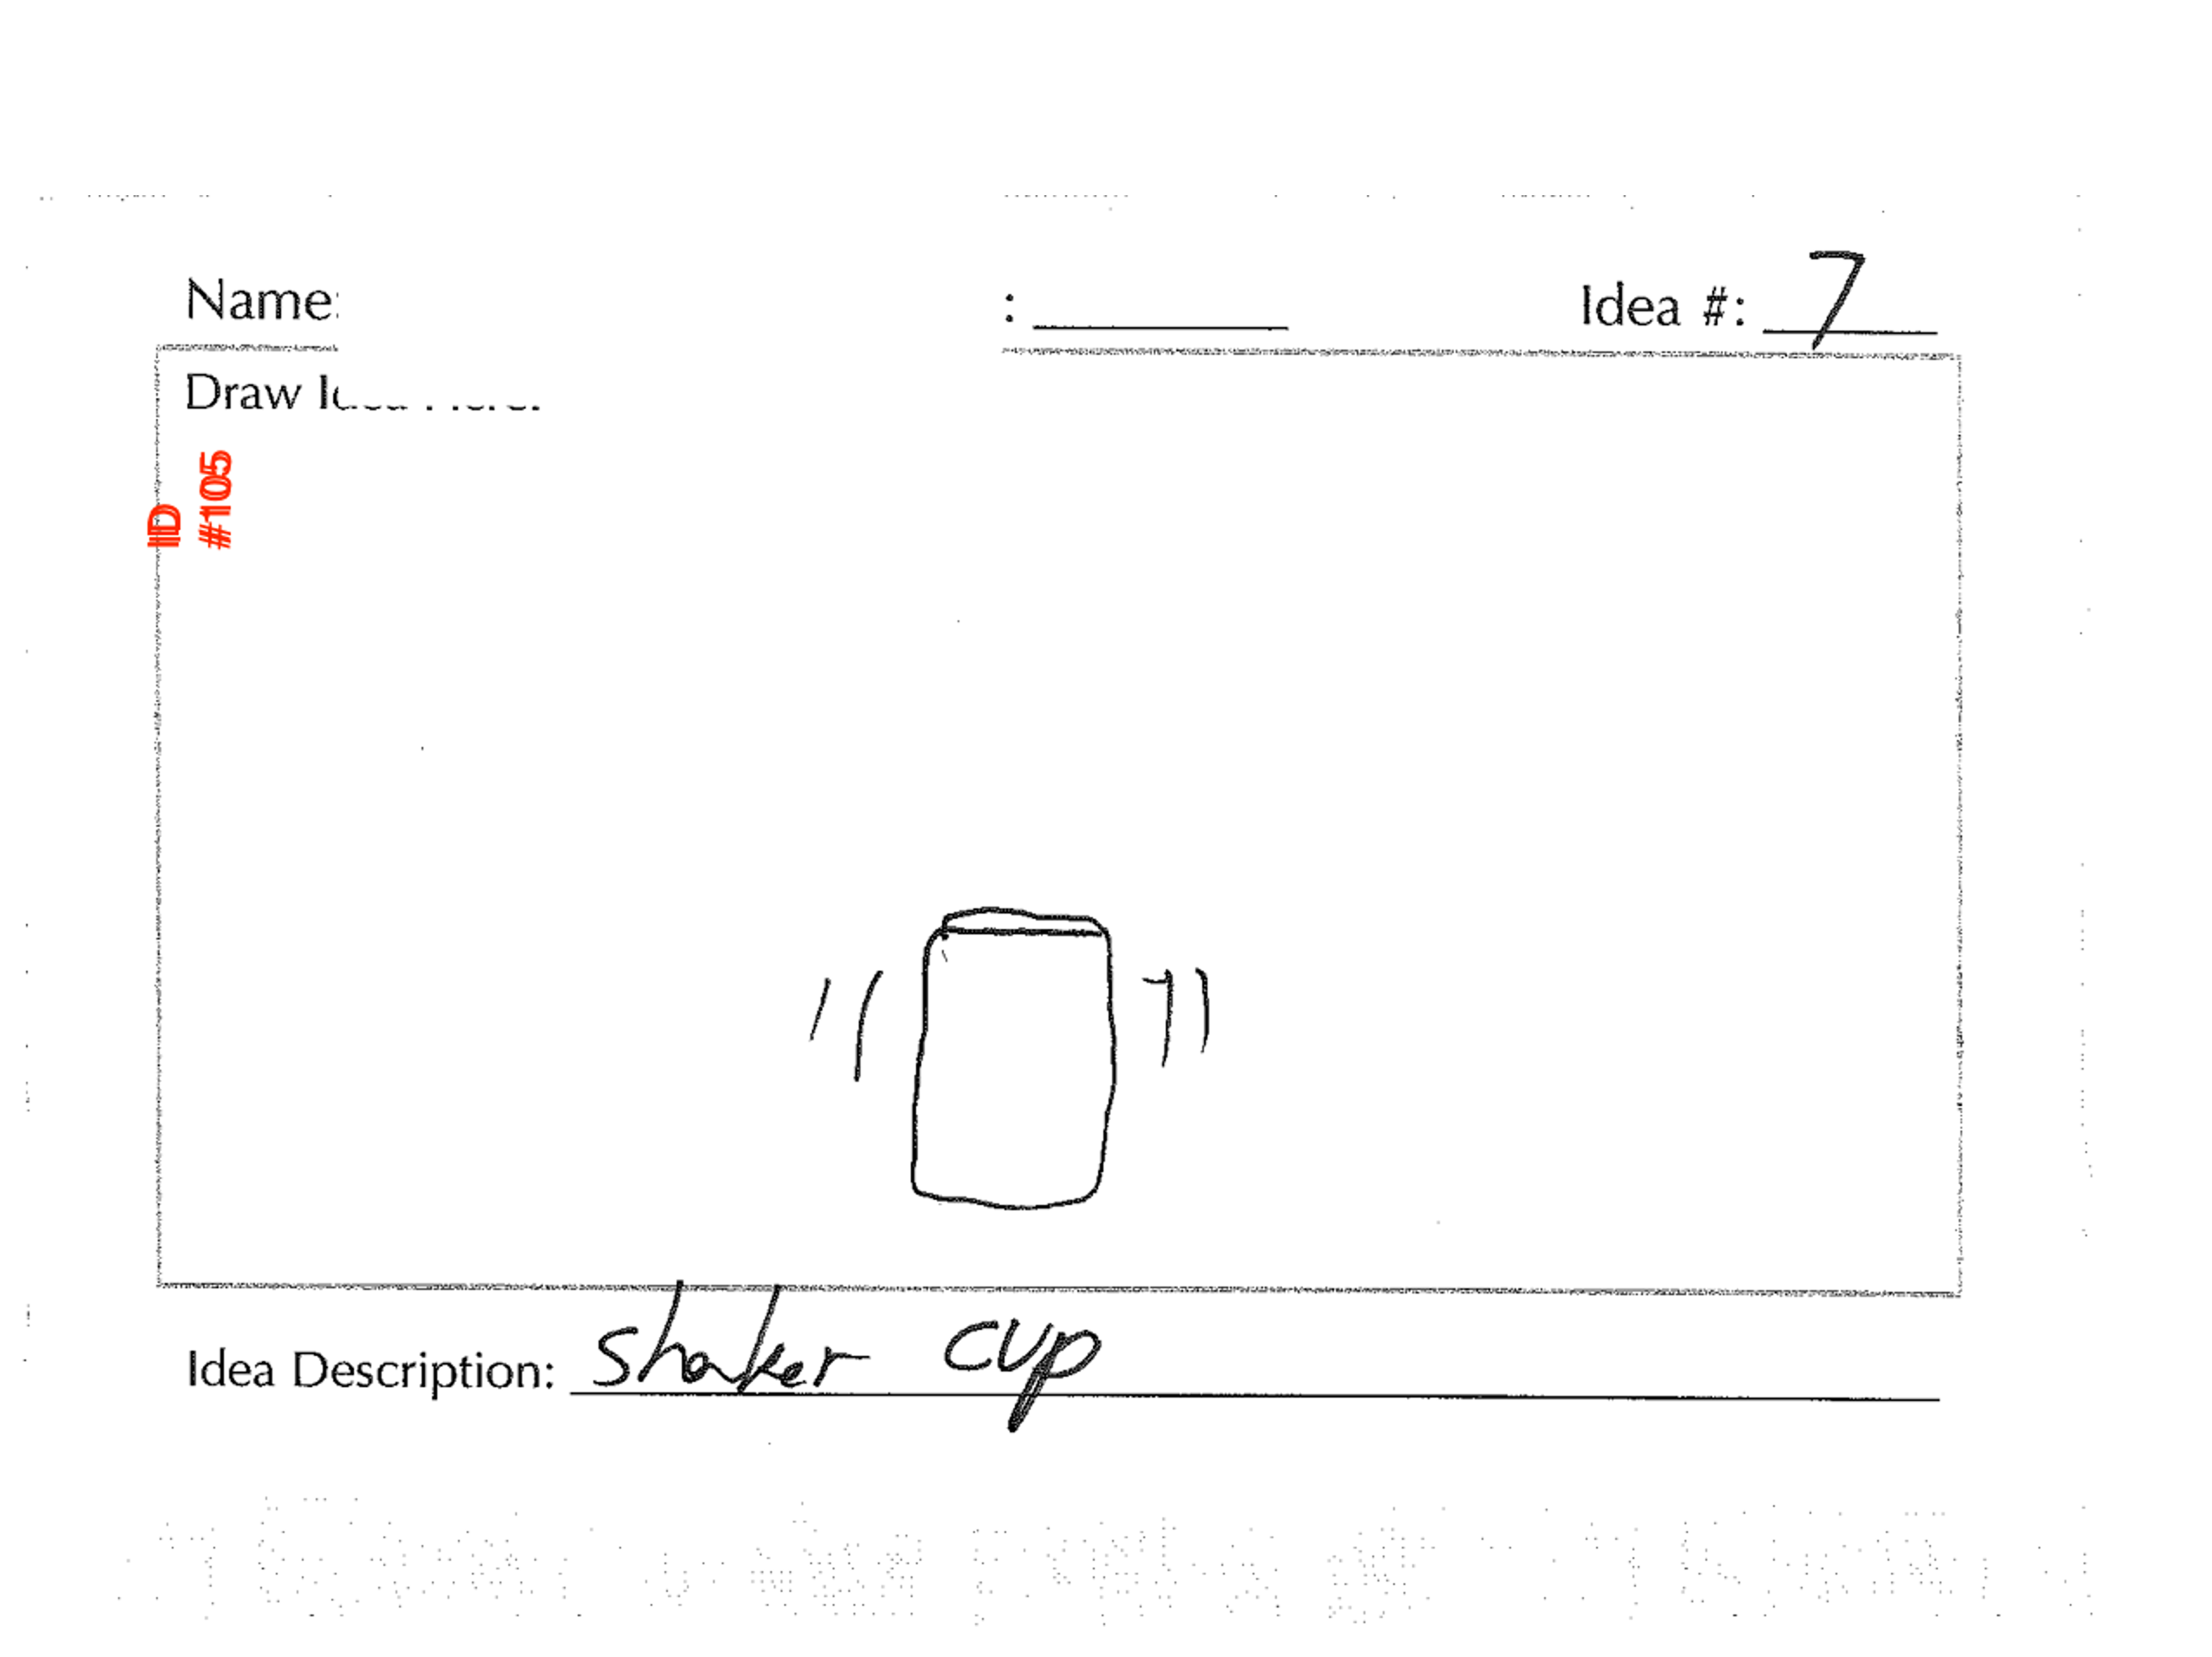 Name:
: Idea #: 7
Draw
ID
#105
Idea Description: shaker cup